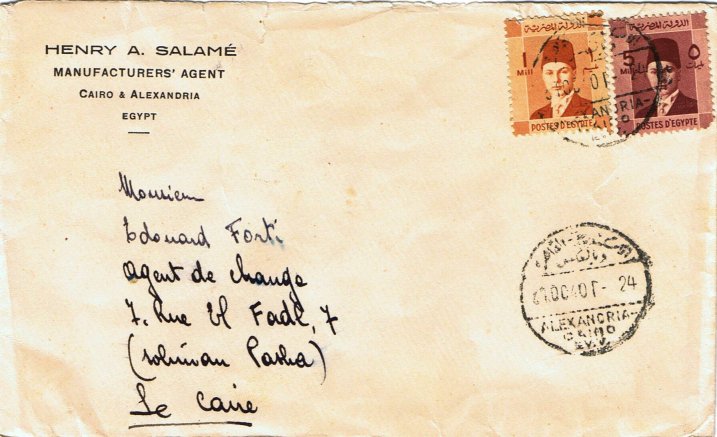 HENRY A. SALAMÉ
MANUFACTURERS' AGENT
CAIRO & ALEXANDRIA
EGYPT
الدولة المصرية
1
Mill
POSTES D'EGYPTE
الدولة المصرية
5
Mills
٥
POSTES D'EGYPTE
ALEXANDRIA-
CAIRO
Monsieur
Edouard Forti
agent de change
7, Rue El Fadl, 7
(Soliman Pasha)
Le Caire
24
ALEXANDRIA-
CAIRO